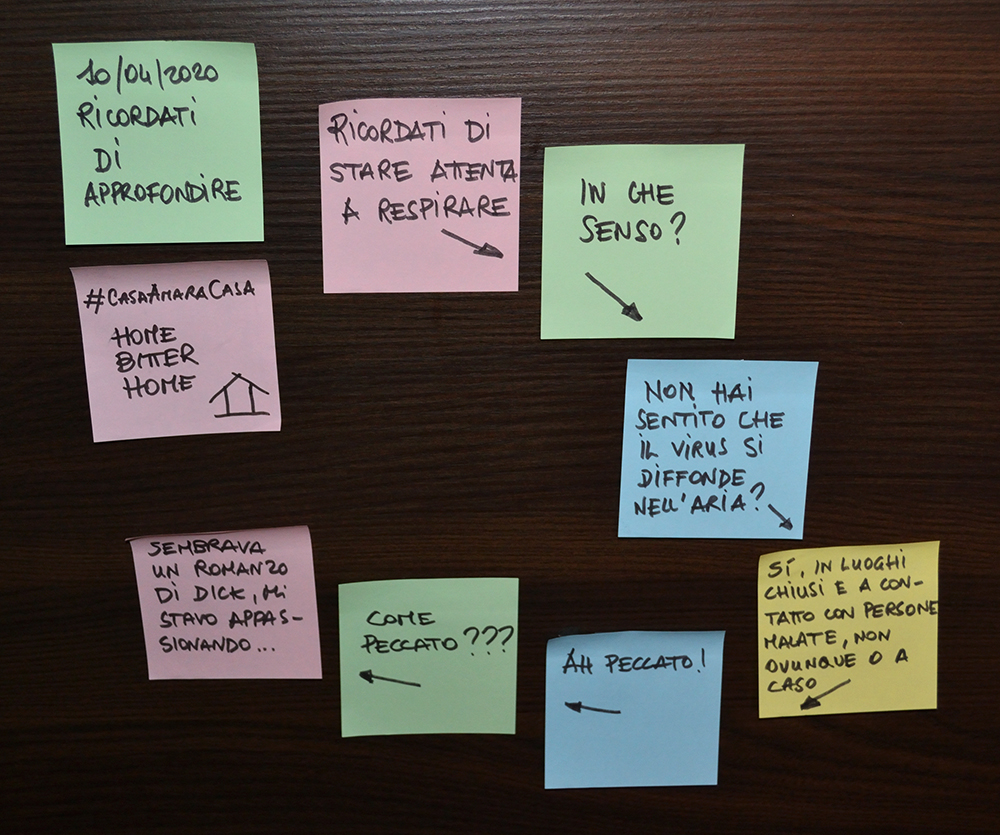 10/04/2020
RICORDATI
DI
APPROFONDIRE
#CASAAMARACASA
HOME
BITTER
HOME
RICORDATI DI
STARE ATTENTA
A RESPIRARE
IN CHE
SENSO?
NON HAI
SENTITO CHE
IL VIRUS SI
DIFFONDE
NELL'ARIA?
SÍ, IN LUOGHI
CHIUSI E A CON-
TATTO CON PERSONE
MALATE, NON
OVUNQUE O A
CASO
AH PECCATO!
COME
PECCATO???
SEMBRAVA
UN ROMANZO
DI DICK, MI
STAVO APPAS-
SIONANDO...